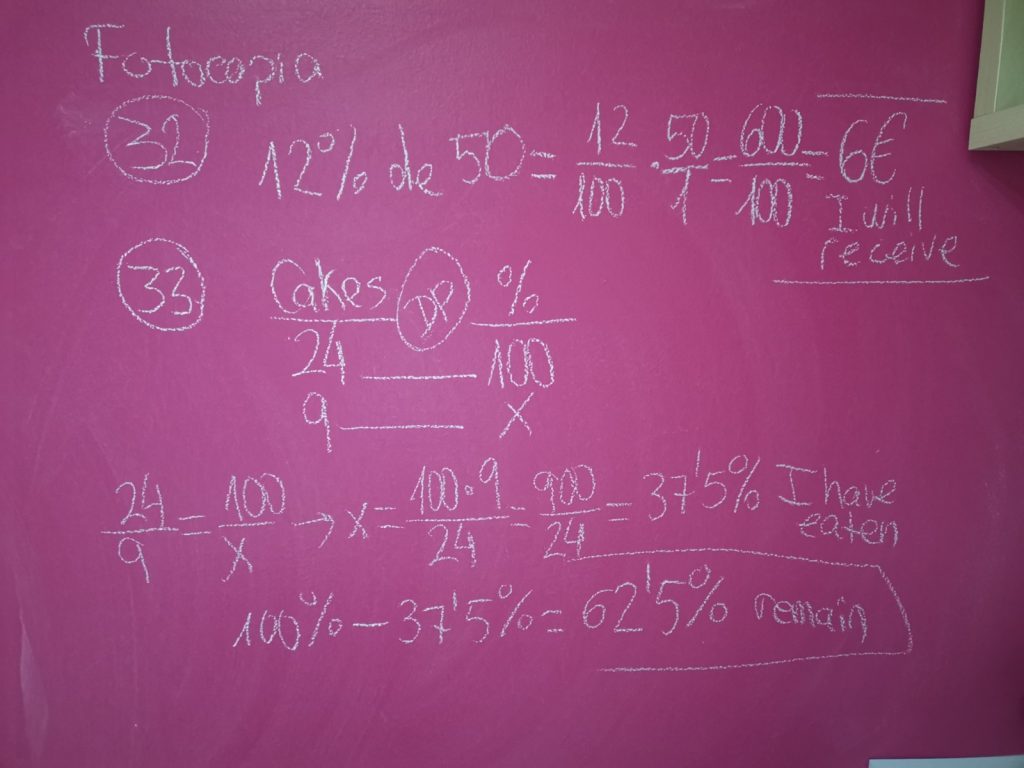 Fotocopia
32 12% de 50 = 12/100 · 50/1 = 600/100 = 6€
I will
receive
33 Cakes DP %
24 100
9 x
24/9 = 100/x → x = 100·9/24 = 900/24 = 37'5% I have
eaten
100% - 37'5% = 62'5% remain